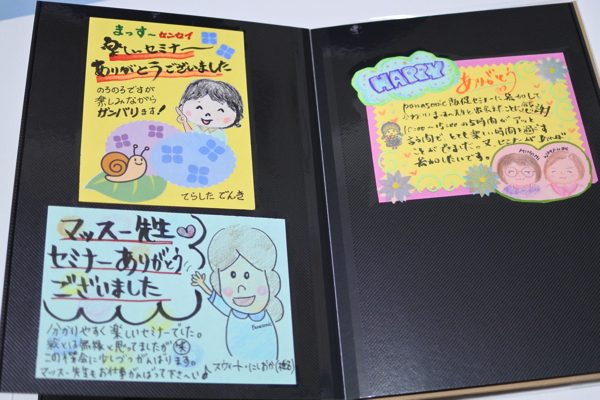 まっすーセンセイ
楽しいセミナー
ありがとうございました
のろのろですが
楽しみながら
ガンバリます!
てらした でんき
マッスー先生
セミナーありがとう
ございました
分かりやすく楽しいセミナーでした。
絵とは無縁と思ってましたが(笑)
この機会に少しづつがんばります。
マッスー先生もお仕事がんばって下さーい♪
Panasonic
スウィート・にしおか
HAPPY
ありがとう
panasonic販促セミナーに参加して
10:00〜15:00の5時間が アッと
る間で とても楽しい時間を過す
ことが できました。又、セミナーが あれば
参加したいです。